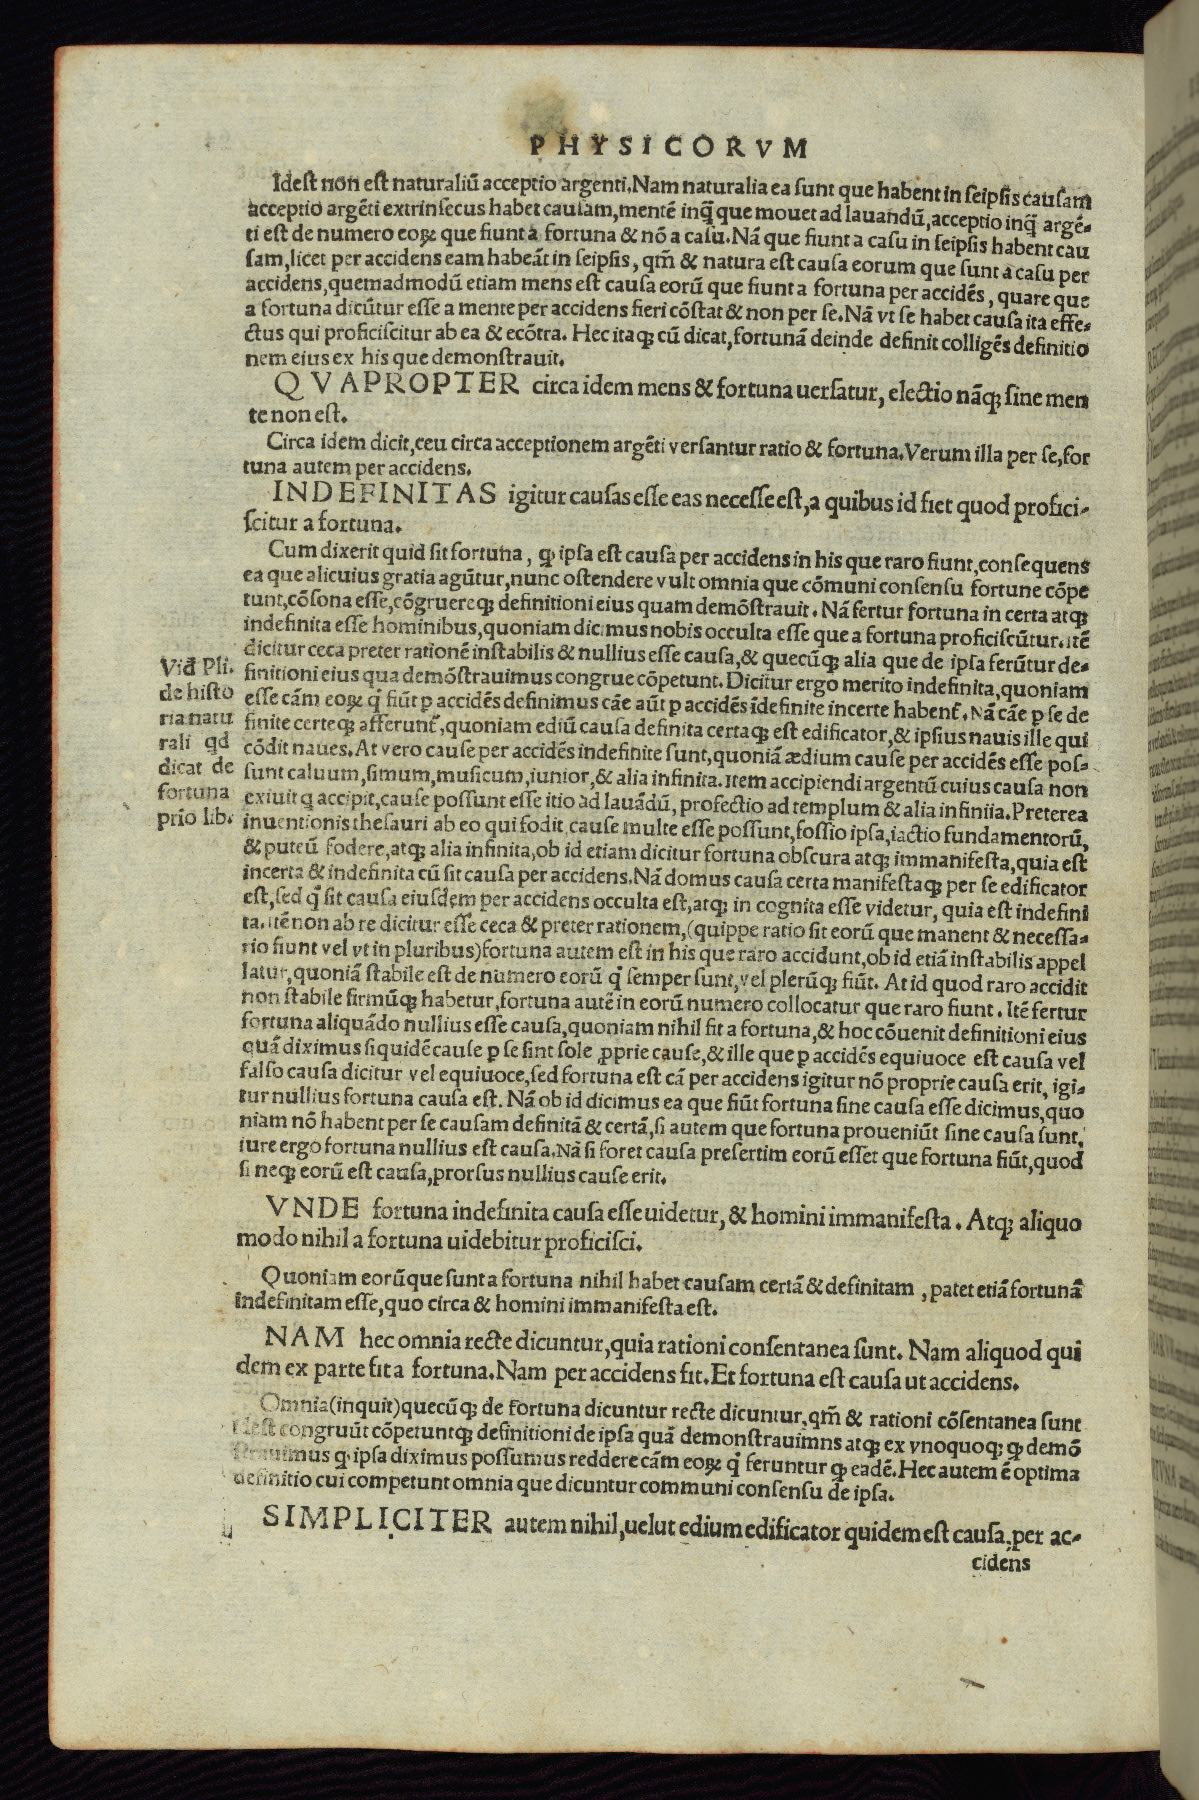 PHYSICORVM
Idest non est naturaliũ acceptio argenti. Nam naturalia ea sunt que habent in seipsis causam
acceptio argẽti extrinsecus habet causam, mentẽ inq̃ que mouet ad lauandũ, acceptio inq̃ argẽ-
ti est de numero eoꝝ que fiunt a fortuna & nõ a casu. Nã que fiunt a casu in seipsis habent cau
sam, licet per accidens eam habeãt in seipsis, qm̃ & natura est causa eorum que sunt a casu per
accidens, quemadmodũ etiam mens est causa eorũ que fiunt a fortuna per accidẽs, quare que
a fortuna dicũtur esse a mente per accidens fieri cõstat & non per se. Nã vt se habet causa ita effe-
ctus qui proficiscitur ab ea & ecõtra. Hec itaqꝫ cũ dicat, fortunã deinde definit colligẽs definitio
nem eius ex his que demonstrauit.
QVAPROPTER circa idem mens & fortuna uersatur, electio nãqꝫ sine men
te non est.
Circa idem dicit, ceu circa acceptionem argẽti versantur ratio & fortuna. Verum illa per se, for
tuna autem per accidens.
INDEFINITAS igitur causas esse eas necesse est, a quibus id fiet quod profici-
scitur a fortuna.
Cum dixerit quid sit fortuna, ꝙ ipsa est causa per accidens in his que raro fiunt, consequens
ea que alicuius gratia agũtur, nunc ostendere vult omnia que cõmuni consensu fortune cõpe
tunt, cõsona esse, cõgruereqꝫ definitioni eius quam demõstrauit. Nã fertur fortuna in certa atqꝫ
indefinita esse hominibus, quoniam dicimus nobis occulta esse que a fortuna proficiscũtur. itẽ
dicitur ceca preter rationẽ instabilis & nullius esse causa, & quecũqꝫ alia que de ipsa ferũtur de-
finitioni eius qua demõstrauimus congrue cõpetunt. Dicitur ergo merito indefinita, quoniam
esse cãm eoꝝ q̃ fiũt ꝑ accidẽs definimus cãe aũt ꝑ accidẽs ĩdefinite incerte habent̃. Nã cãe ꝑ se de
finite certeqꝫ afferunt̃, quoniam ediũ causa definita certaqꝫ est edificator, & ipsius nauis ille qui
cõdit naues. At vero cause per accidẽs indefinite sunt, quoniã ædium cause per accidẽs esse pos-
sunt caluum, simum, musicum, iunior, & alia infinita. Item accipiendi argentũ cuius causa non
exiuit q accipit, cause possunt esse itio ad lauãdũ, profectio ad templum & alia infiniia. Preterea
inuentionis thesauri ab eo qui fodit cause multe esse possunt, fossio ipsa, iactio fundamentorũ,
& puteũ fodere, atqꝫ alia infinita, ob id etiam dicitur fortuna obscura atqꝫ immanifesta, quia est
incerta & indefinita cũ sit causa per accidens. Nã domus causa certa manifestaqꝫ per se edificator
est, sed q̃ sit causa eiusdem per accidens occulta est, atqꝫ in cognita esse videtur, quia est indefini
ta. itẽ non ab re dicitur esse ceca & preter rationem, (quippe ratio sit eorũ que manent & necessa-
rio fiunt vel vt in pluribus) fortuna autem est in his que raro accidunt, ob id etiã instabilis appel
latur, quoniã stabile est de numero eorũ q̃ semper sunt, vel plerũqꝫ fiũt. At id quod raro accidit
non stabile firmũqꝫ habetur, fortuna autẽ in eorũ numero collocatur que raro fiunt. Itẽ fertur
fortuna aliquãdo nullius esse causa, quoniam nihil fit a fortuna, & hoc cõuenit definitioni eius
quã diximus siquidẽ cause ꝑ se sint sole ꝓprie cause, & ille que ꝑ accidẽs equiuoce est causa vel
falso causa dicitur vel equiuoce, sed fortuna est cã per accidens igitur nõ proprie causa erit, igi-
tur nullius fortuna causa est. Nã ob id dicimus ea que fiũt fortuna sine causa esse dicimus, quo
niam nõ habent per se causam definitã & certã, si autem que fortuna proueniũt sine causa sunt,
iure ergo fortuna nullius est causa. Nã si foret causa presertim eorũ esset que fortuna fiũt, quod
si neqꝫ eorũ est causa, prorsus nullius cause erit.
Vid̃ Pli.
de histo
ria natu
rali qd
dicat de
fortuna
prio lib.
VNDE fortuna indefinita causa esse uidetur, & homini immanifesta. Atqꝫ aliquo
modo nihil a fortuna uidebitur proficisci.
Quoniam eorũ que sunt a fortuna nihil habet causam certã & definitam, patet etiã fortunã
indefinitam esse, quo circa & homini immanifesta est.
NAM hec omnia recte dicuntur, quia rationi consentanea sunt. Nam aliquod qui
dem ex parte fit a fortuna. Nam per accidens fit. Et fortuna est causa ut accidens.
Omnia (inquit) quecũqꝫ de fortuna dicuntur recte dicuntur, qm̃ & rationi cõsentanea sunt
Idest congruũt cõpetuntqꝫ definitioni de ipsa quã demonstrauimns atqꝫ ex vnoquoqꝫ ꝙ demõ
strauimus ꝙ ipsa diximus possumus reddere cãm eoꝝ q̃ feruntur ꝙ eadẽ. Hec autem ẽ optima
definitio cui competunt omnia que dicuntur communi consensu de ipsa.
SIMPLICITER autem nihil, uelut edium edificator quidem est causa, per ac-
cidens